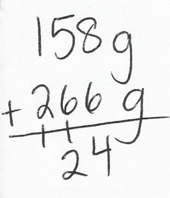 158g
+ 266 g
11
24